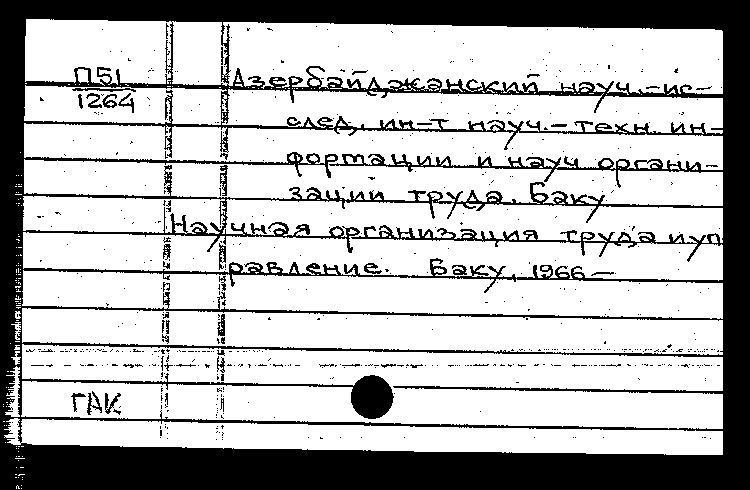 П51
1264
Азербайджанский науч.-ис-
след. ин-т науч.-техн. ин-
формации и науч органи-
заций труда. Баку
Научная организация труда и уп
равление. Баку, 1966 —
ГАК